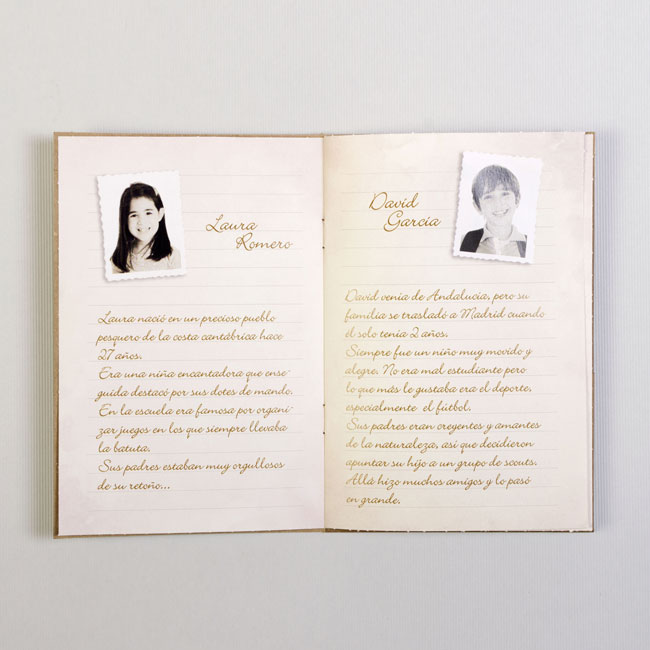 Laura
Romero
Laura nació en un precioso pueblo
pesquero de la costa cantábrica hace
27 años.
Era una niña encantadora que ense-
guida destacó por sus dotes de mando.
En la escuela era famosa por organi-
zar juegos en los que siempre llevaba
la batuta.
Sus padres estaban muy orgullosos
de su retoño...
David
Garcia
David venia de Andalucia, pero su
familia se trasladó a Madrid cuando
el solo tenia 2 años.
Siempre fue un niño muy movido y
alegre. No era mal estudiante pero
lo que más le gustaba era el deporte,
especialmente el fútbol.
Sus padres eran creyentes y amantes
de la naturaleza, asi que decidieron
apuntar su hijo a un grupo de scouts.
Allá hizo muchos amigos y lo pasó
en grande.